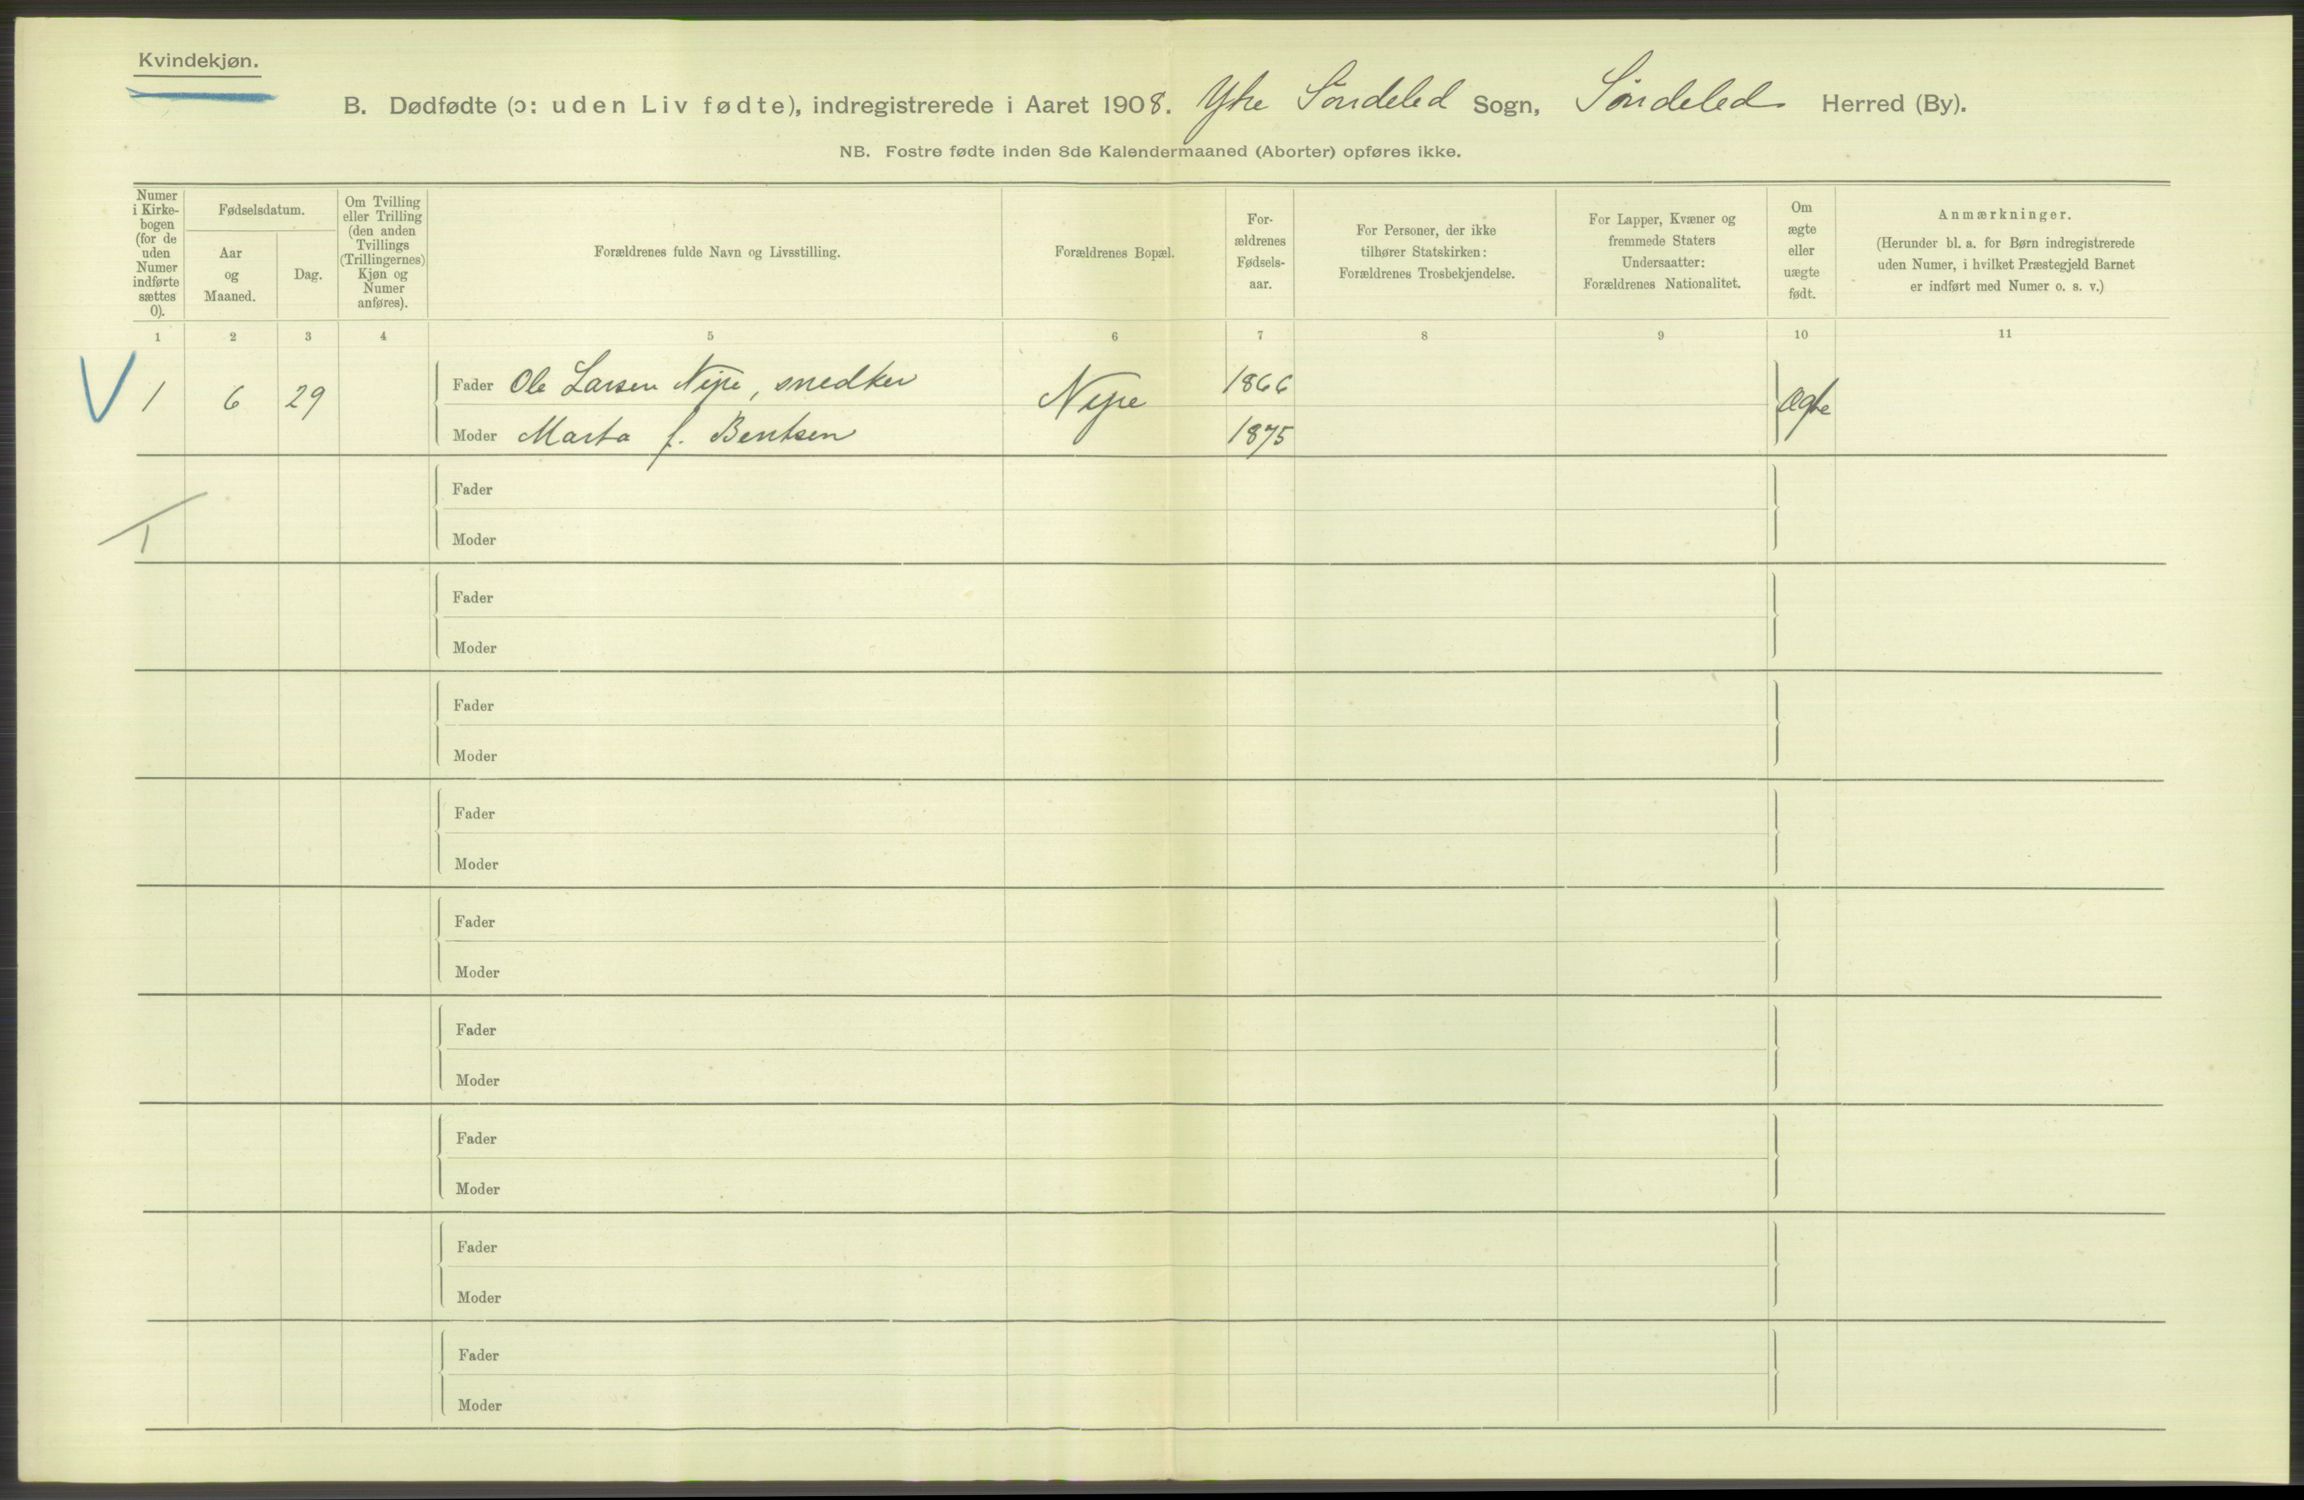 Kvindekjøn.
B. Dødfødte (ɔ: uden Liv fødte), indregistrerede i Aaret 1908. Ytre Söndeled Sogn, Söndeled Herred (By).
NB. Fostre fødte inden 8de Kalendermaaned (Aborter) opføres ikke.
Numer
i Kirke-
bogen
(for de
uden
Numer
indførte
sættes
0).
Fødselsdatum.
Aar
og
Maaned.
Dag.
Om Tvilling
eller Trilling
(den anden
Tvillings
(Trillingernes)
Kjøn og
Numer
anføres).
Forældrenes fulde Navn og Livsstilling.
Forældrenes Bopæl.
For-
ældrenes
Fødsels-
aar.
For Personer, der ikke
tilhører Statskirken:
Forældrenes Trosbekjendelse.
For Lapper, Kvæner og
fremmede Staters
Undersaatter:
Forældrenes Nationalitet.
Om
ægte
eller
uægte
født.
Anmærkninger.
(Herunder bl. a. for Børn indregistrerede
uden Numer, i hvilket Præstegjeld Barnet
er indført med Numer o. s. v.)
1 2 3 4 5 6 7 8 9 10 11
V 1 6 29 Fader Ole Larsen Nipe, snedker Nipe 1866 Ægte
Moder Marta f. Bentsen 1875
Fader
1
Moder
Fader
Moder
Fader
Moder
Fader
Moder
Fader
Moder
Fader
Moder
Fader
Moder
Fader
Moder
Fader
Moder